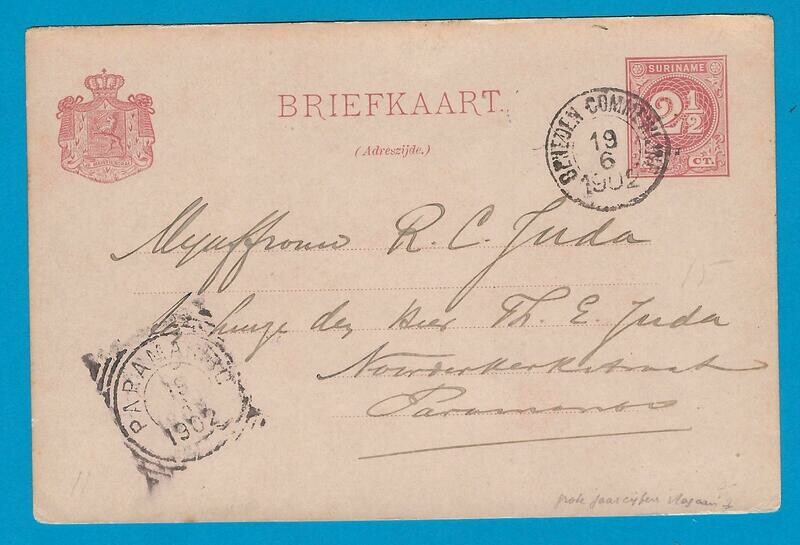 SURINAME
2½
CT.
BRIEFKAART.
(Adreszijde.)
BENEDEN COMMEWIJNE
19
6
1902
Mejuffrouw R. C. Juda
ten huize den Heer Th. E. Juda
Noorderkerkstraat
Paramaribo
PARAMARIBO
19
1902
15
11
grote jaarcijfers